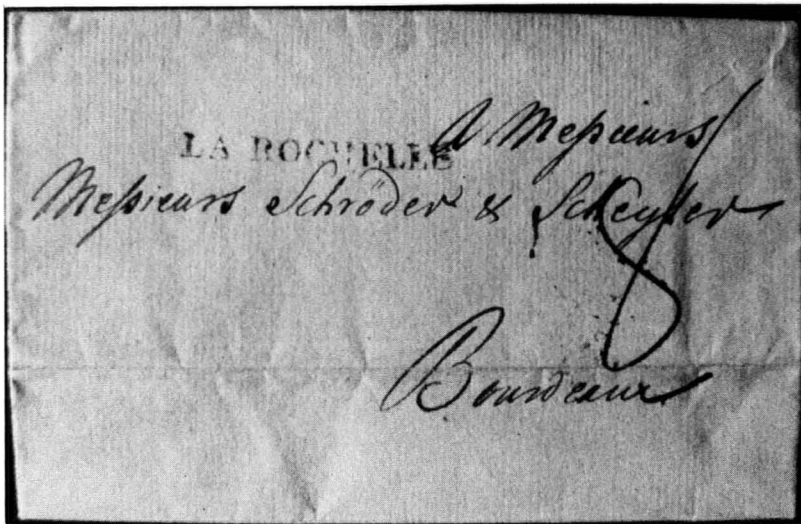 LA ROCHELLE
A Messieurs
Messieurs Schröder & Schÿler
Bourdeaux
8